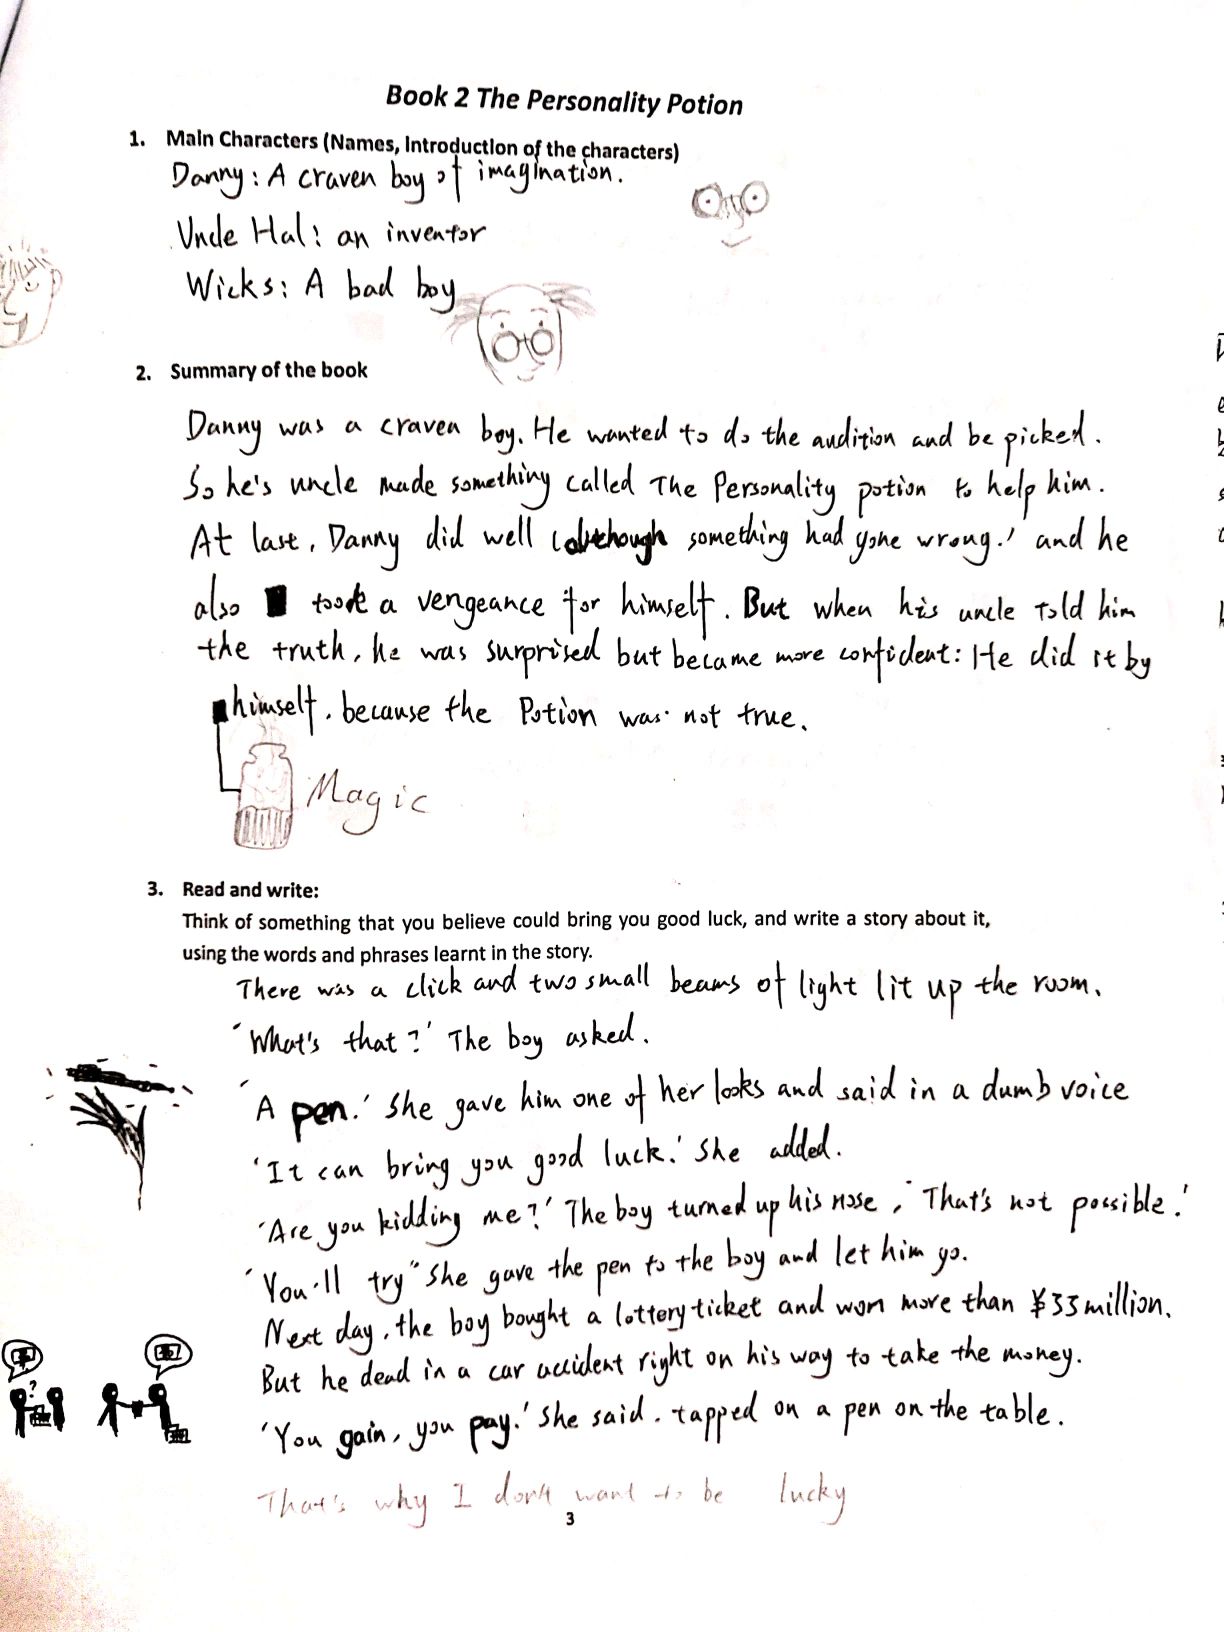 Book 2 The Personality Potion
1. Main Characters (Names, Introduction of the characters)
Danny: A craven boy of imagination.
Uncle Hal: an inventor
Wicks: A bad boy
2. Summary of the book
Danny was a craven boy. He wanted to do the audition and be picked.
So he's uncle made something called The Personality potion to help him.
At last, Danny did well (although something had gone wrong.) and he
also took a vengeance for himself. But when his uncle told him
the truth, he was surprised but became more confident: He did it by
himself, because the Potion was not true.
Magic
3. Read and write:
Think of something that you believe could bring you good luck, and write a story about it,
using the words and phrases learnt in the story.
There was a click and two small beams of light lit up the room.
'What's that?' The boy asked.
'A pen.' She gave him one of her looks and said in a dumb voice
'It can bring you good luck.' She added.
'Are you kidding me?' The boy turned up his nose, 'That's not possible.'
'You'll try" She gave the pen to the boy and let him go.
Next day, the boy bought a lottery ticket and won more than ¥33 million.
But he dead in a car accident right on his way to take the money.
'You gain, you pay.' She said. tapped on a pen on the table.
That's why I don't want to be lucky
3